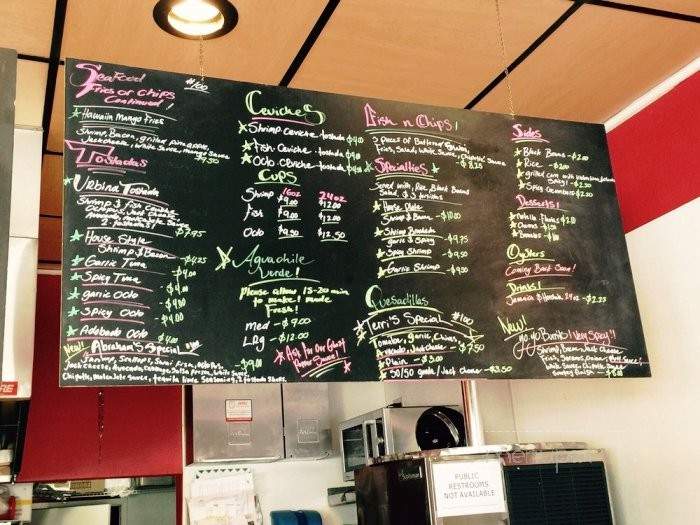 Seafood
Fries or Chips
Continued!
#100
Hawaiin Mango Fries
Shrimp, Bacon, grilled pineapple,
Jack cheese, white Sauce, Mango Sauce
$7.50
Tostadas
Urbina Tostada
Shrimp & Fish Ceviche
Octopus, Jack Cheese
2 tostadas!
$7.95
House Style
Shrimp & Bacon
$4.25
Garlic Tuna
$4.00
Spicy Tuna
$4.00
garlic Octo
$4.00
Spicy Octo
$4.00
Adobado Octo
$4.00
New! Abraham's Special
Shrimp, Scallops, Tuna, Octopus,
Jack cheese, Avocado, Cabbage, Salsa Fresca, White Sauce,
Chipotle, tequila lime Seasoning, 2 tostada Shells.
Ceviches
Shrimp Ceviche tostada $4.00
Fish Ceviche tostada $4.00
Octo Ceviche tostada $4.00
Cups
16oz 24oz
Shrimp $9.00 $12.00
fish $9.00 $12.00
Octo $9.50 $12.50
Aguachile
Verde!
Please allow 15-20 min
to make! made
Fresh!
med - $9.00
LRg - $12.00
Ask for Our Ghost
Pepper Sauce!
Fish n Chips!
3 pieces of Battered
Fries, Salad, White Sauce, Chipotle Sauce
$8.25
Specialties
Served with, Rice, Black Beans
Salad, & 3 tortillas
House Plate
Shrimp & Bacon - $10.00
Shrimp Enchilada
garlic & Spicy - $9.75
Spicy Shrimp - $9.50
Garlic Shrimp - $9.50
Quesadillas
Terri's Special #100
Tomato, garlic, Chips,
Avocado, Jack Cheese - $7.50
Plain - $3.00
50/50 goats/Jack cheese - $3.50
Sides
Black Beans - $2.00
Rice - $2.00
grilled corn with
Spicy! - $2.50
Spicy Cucumbers $2.50
Desserts!
Vanilla Flan - $2.00
Churros - $1.50
Oysters
Coming Back Soon!
Drinks!
Jamaica & Horchata, 24oz - $2.25
New!
yo yo Burrito! Very Spicy!!
Shrimp, Jack Cheese
White Sauce, Chipotle
Smokey finish - $8.00
PUBLIC
RESTROOMS
NOT AVAILABLE